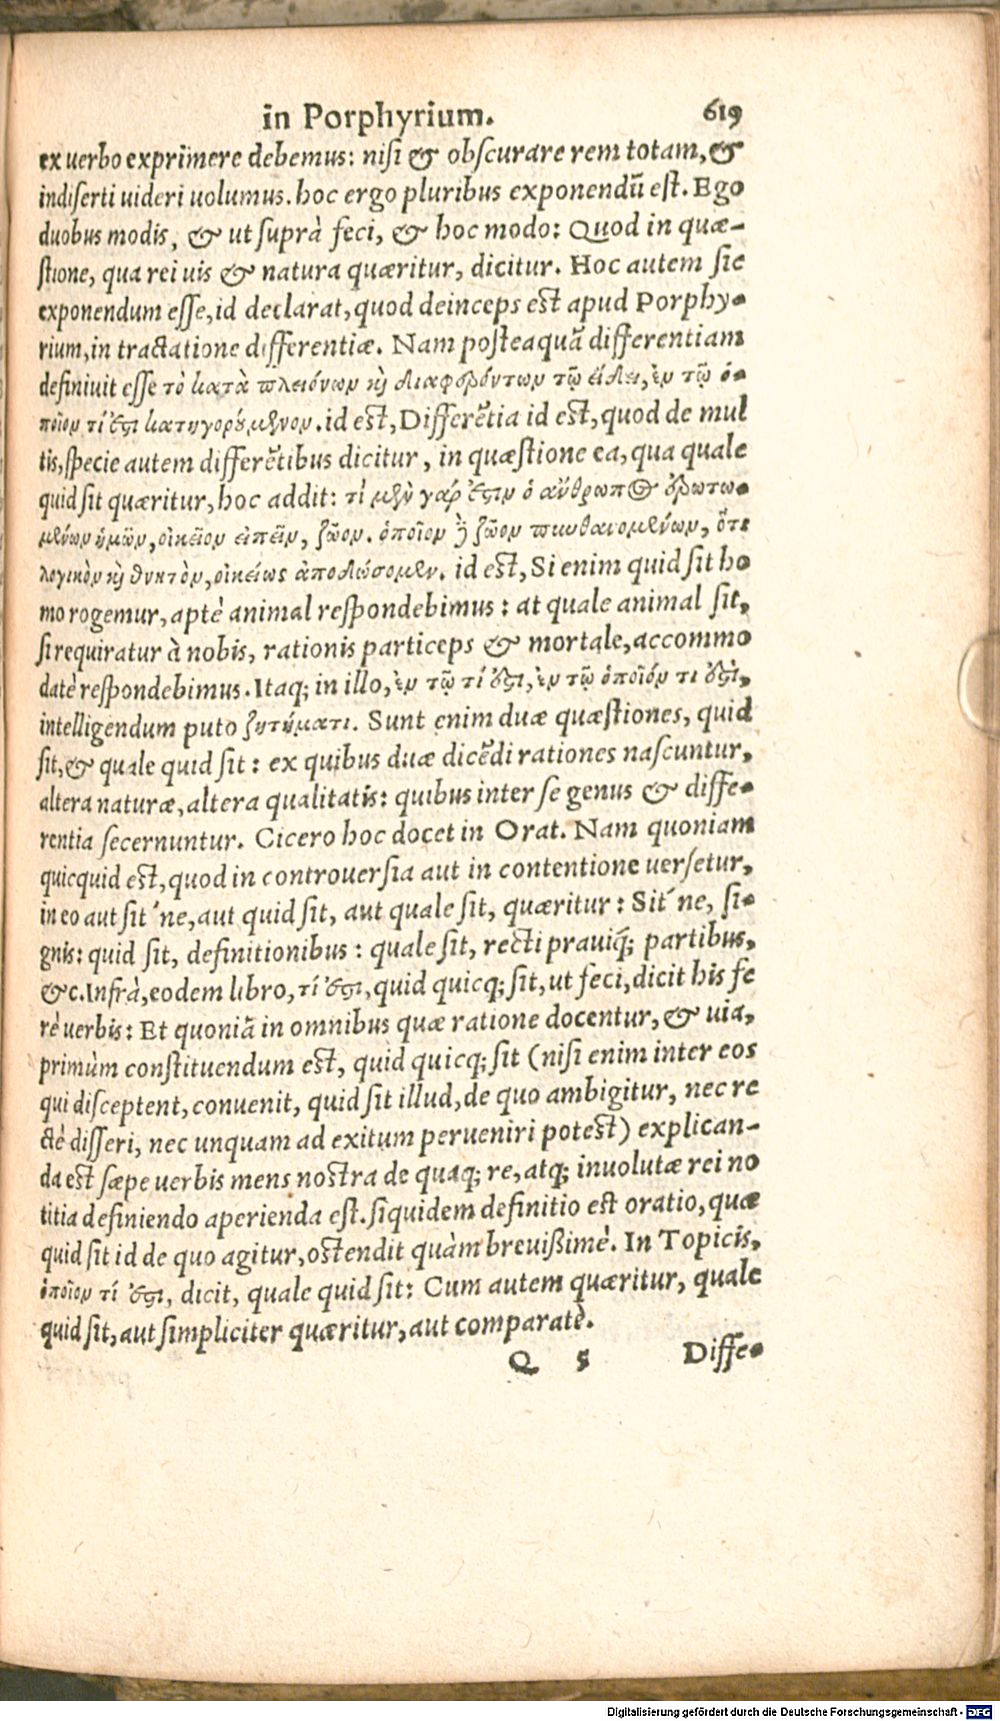 in Porphyrium. 619
ex uerbo exprimere debemus: nisi & obscurare rem totam, &
indiserti uideri uolumus. hoc ergo pluribus exponendū est. Ego
duobus modis, & ut suprà feci, & hoc modo: Quod in quæ-
stione, qua rei uis & natura quæritur, dicitur. Hoc autem sic
exponendum esse, id declarat, quod deinceps est apud Porphy-
rium, in tractatione differentiæ. Nam posteaquā differentiam
definiuit esse τὸ κατὰ πλειόνων κὴ διαφερόντων τῷ εἴδει, ἐν τῷ ὁ-
ποῖον τί ἐστι κατηγορούμενον. id est, Differētia id est, quod de mul
tis, specie autem differētibus dicitur, in quæstione ea, qua quale
quid sit quæritur, hoc addit: τί μὲν γάρ ἐστιν ὁ ἄνθρωπος ἐρωτω-
μένων ἡμῶν, οἰκεῖον εἰπεῖν, ζῶον. ὁποῖον ἢ ζῶον πυνθανομένων, ὅτι
λογικὸν κὴ θνητὸν, οἰκείως ἀποδώσομεν. id est, Si enim quid sit ho
mo rogemur, aptè animal respondebimus: at quale animal sit,
si requiratur à nobis, rationis particeps & mortale, accommo
datè respondebimus. Itaq; in illo, ἐν τῷ τί ἐστι, ἐν τῷ ὁποῖόν τι ἐστὶ,
intelligendum puto ζητήματι. Sunt enim duæ quæstiones, quid
sit, & quale quid sit: ex quibus duæ dicēdi rationes nascuntur,
altera naturæ, altera qualitatis: quibus inter se genus & diffe-
rentia secernuntur. Cicero hoc docet in Orat. Nam quoniam
quicquid est, quod in controuersia aut in contentione uersetur,
in eo aut sit´ne, aut quid sit, aut quale sit, quæritur: Sit´ne, si-
gnis: quid sit, definitionibus: quale sit, recti prauiq́; partibus,
&c. Infrà, eodem libro, τί ἐστι, quid quicq; sit, ut feci, dicit his fe
rè uerbis: Et quoniā in omnibus quæ ratione docentur, & uia,
primùm constituendum est, quid quicq; sit (nisi enim inter eos
qui disceptent, conuenit, quid sit illud, de quo ambigitur, nec re
ctè disseri, nec unquam ad exitum perueniri potest) explican-
da est sæpe uerbis mens nostra de quaq; re, atq; inuolutæ rei no
titia definiendo aperienda est. siquidem definitio est oratio, quæ
quid sit id de quo agitur, ostendit quàm breuißimè. In Topicis,
ὁποῖον τί ἐστι, dicit, quale quid sit: Cum autem quæritur, quale
quid sit, aut simpliciter quæritur, aut comparatè.
Q 5 Diffe-
Digitalisierung gefördert durch die Deutsche Forschungsgemeinschaft - DFG